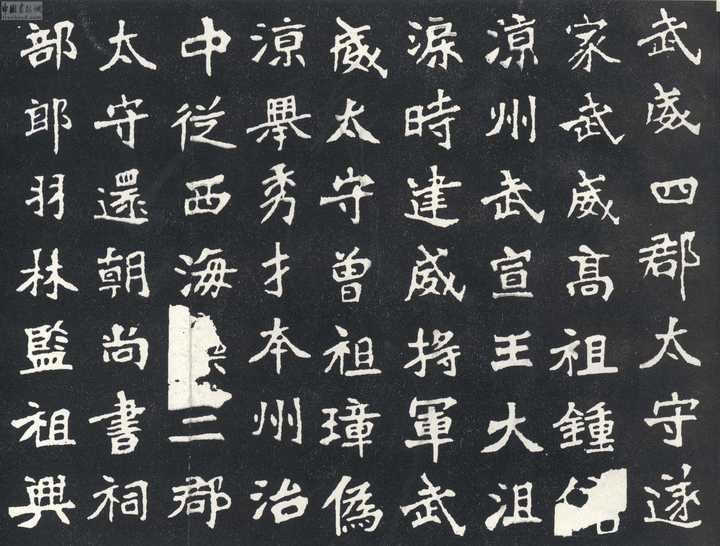 中国书法网
武威四郡太守遂
家武威高祖鍾
涼州武宣王大沮
渠時建威將軍武
威太守曾祖璋偽
涼舉秀才本州治
中從西海二郡
太守還朝尚書祠
部郎羽林監祖興